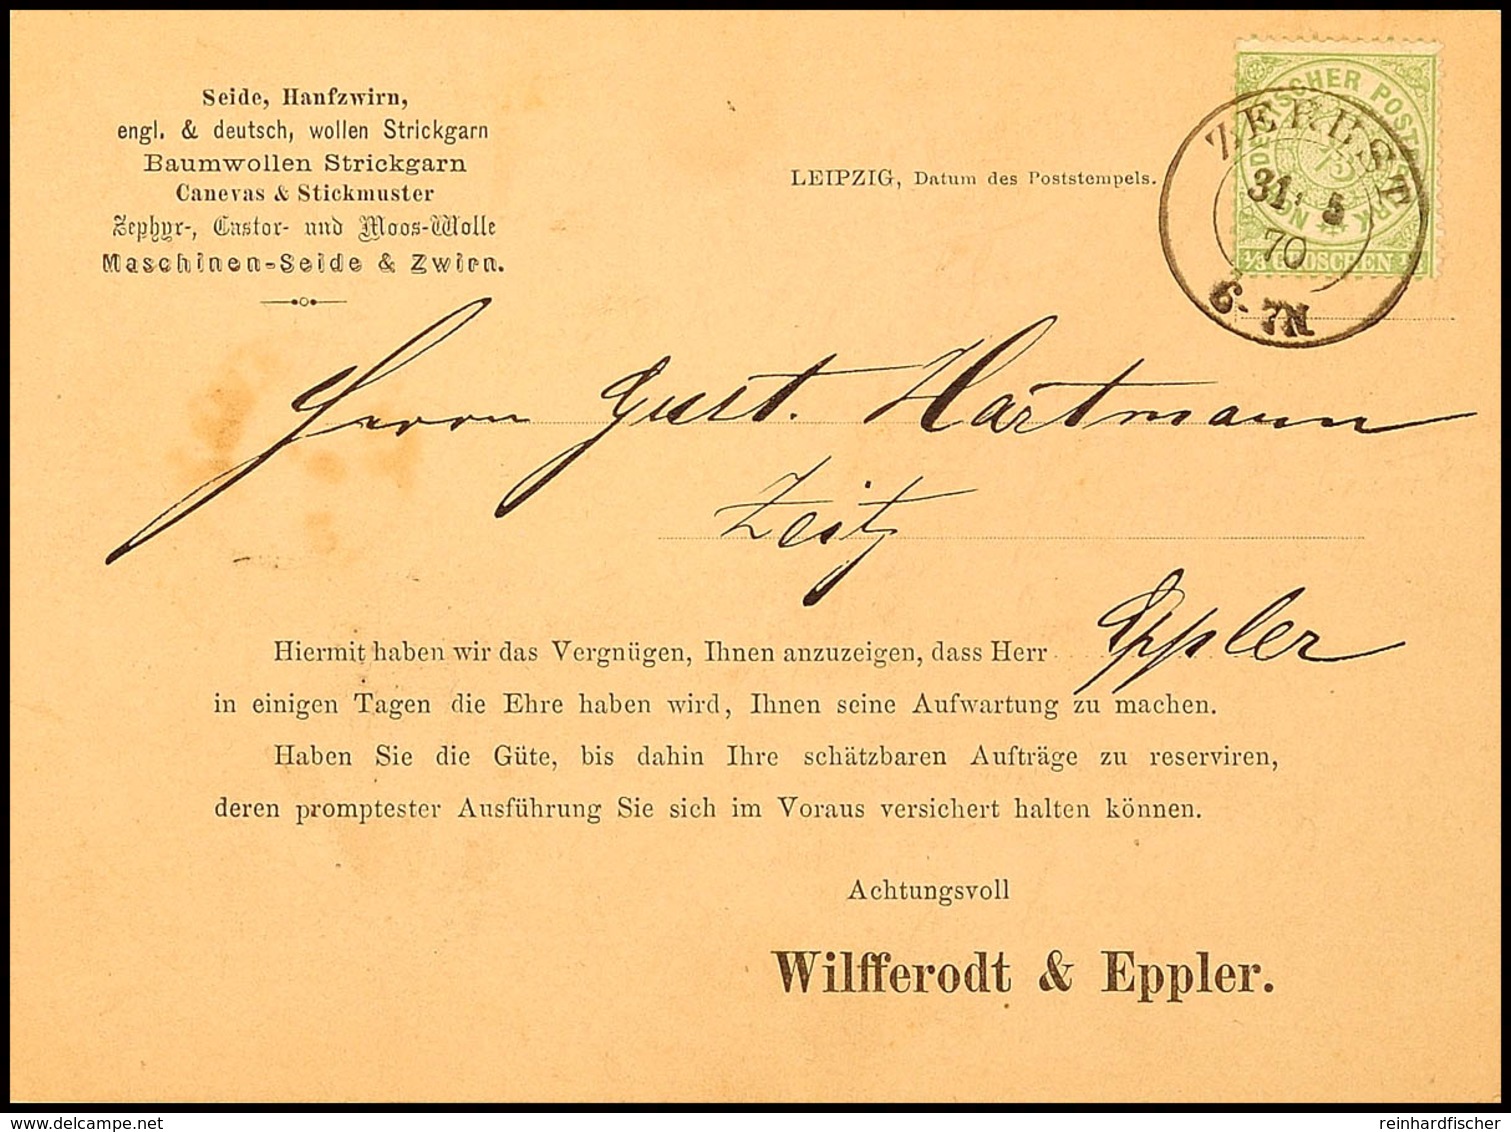 Seide, Hanfzwirn,
engl. & deutsch, wollen Strickgarn
Baumwollen Strickgarn
Canevas & Stickmuster
Zephyr-, Castor- und Moos-Wolle
Maschinen-Seide & Zwirn.
LEIPZIG, Datum des Poststempels.
NORDDEUTSCHER POSTBEZIRK
1/3
1/3 GROSCHEN 1/3
ZERBST
31 5
70
6-7N
Herrn Gust. Hartmann
Zeitz
Hiermit haben wir das Vergnügen, Ihnen anzuzeigen, dass Herr Eppler
in einigen Tagen die Ehre haben wird, Ihnen seine Aufwartung zu machen.
Haben Sie die Güte, bis dahin Ihre schätzbaren Aufträge zu reserviren,
deren promptester Ausführung Sie sich im Voraus versichert halten können.
Achtungsvoll
Wilfferodt & Eppler.
delcampe.net
reinhardfischer